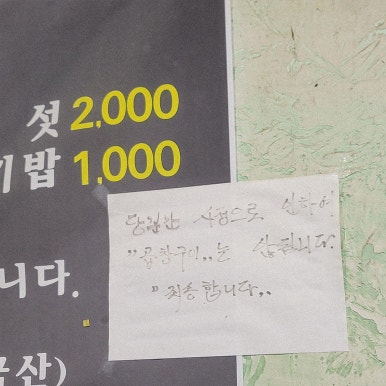 섯 2,000
기밥 1,000
니다.
국산)
당분간 사정으로 인하여
"곱창구이„는 삼뇝니다.
"죄송합니다„